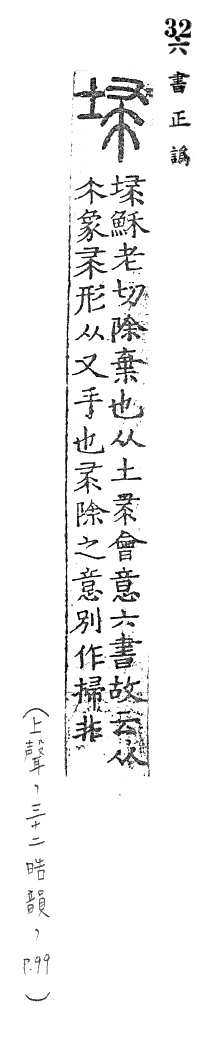 32
六書正譌
穌老切除棄也从土會意六書故云从
象形从又手也除之意別作掃非
（上聲，三十二晧韻，P.99）